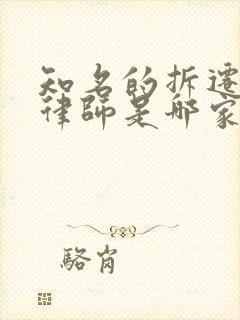 知名的拆遷
律師是哪家
駱肖